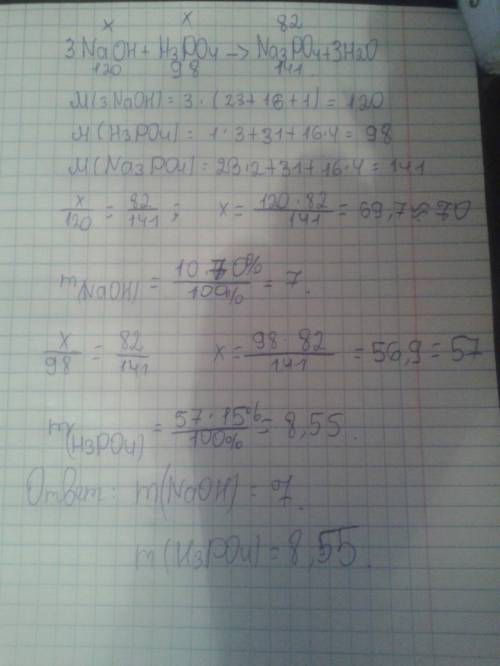 x x 82
3NaOH + H3PO4 -> Na3PO4 + 3H2O
120 98 141
M(3NaOH) = 3 · (23+16+1) = 120
M(H3PO4) = 1·3+31+16·4 = 98
M(Na3PO4) = 23·2+31+16·4 = 141
x/120 = 82/141 ; x = 120·82/141 = 69,7 ≈ 70
m(NaOH) = 10·70%/100% = 7.
x/98 = 82/141 x = 98·82/141 = 56,9 = 57
m(H3PO4) = 57·15%/100% = 8,55.
Ответ: m(NaOH) = 7.
m(H3PO4) = 8,55.